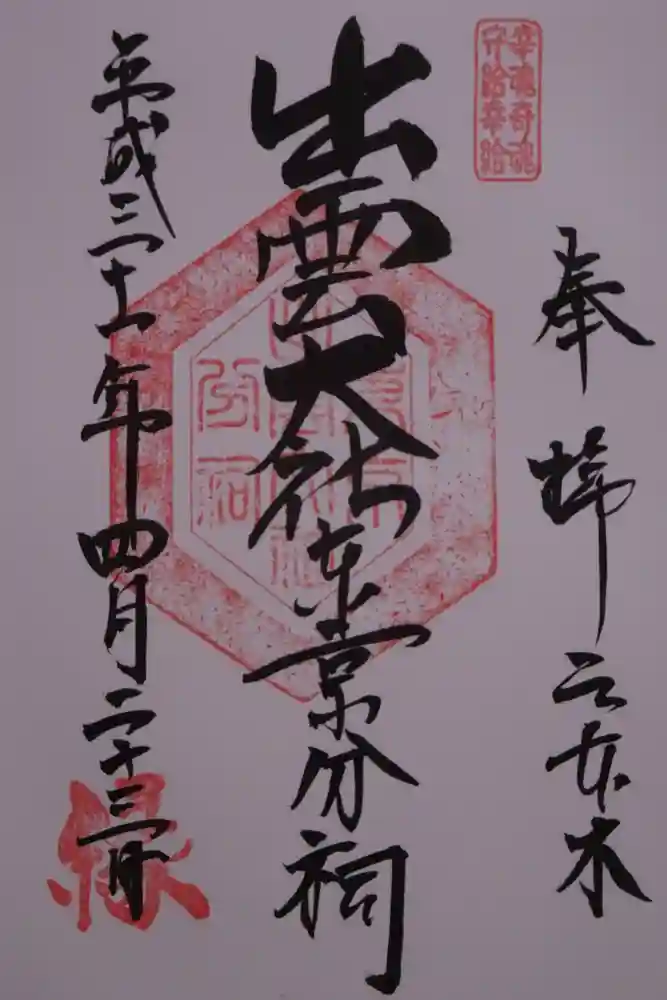 幸魂奇魂
守給幸給
奉拝 六本木
出雲大社東京分祠
平成三十一年四月二十三日
縁